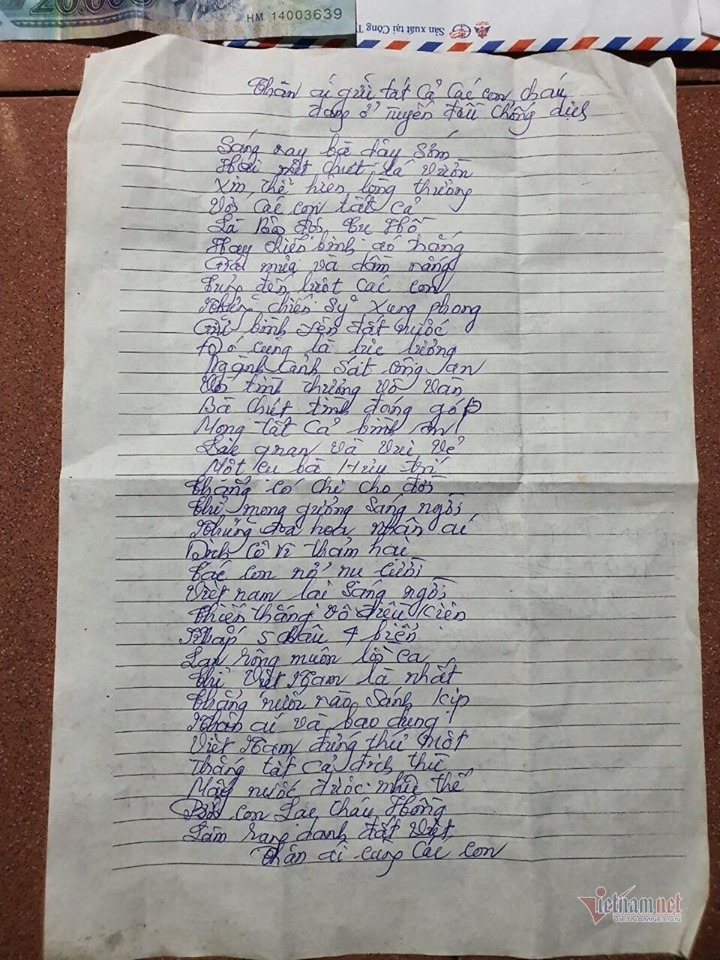 20.000
HM 14003639
Sản xuất tại Công T
Thân ái gửi tất cả các con cháu
đang ở tuyến đầu chống dịch
Sáng nay bà dậy sớm
Hái một chiết lá vườn
Xin thể hiện lòng thương
Với các con tất cả
Là Bộ đội Cụ Hồ
Hay chiến binh áo trắng
Giải mưa và dầm nắng
đến lượt các con
chiến sỹ xung phong
Giữ bình yên đất nước
Đó cũng là lực lượng
Ngành cảnh sát công an
Với tình thương vô vàn
Bà chút tình đóng góp
Mong tất cả bình an
Lạc quan và vui vẻ
Một cụ bà Hưu trí
Chẳng có chi cho đời
Chỉ mong gương sáng ngời
Những đoá hoa nhân ái
Dịch cô vi thảm hại
Các con nở nụ cười
Việt nam lại sáng ngời
Chiến thắng vô điều kiện
Khắp 5 châu 4 biển
Lan rộng muôn lời ca
Chỉ Việt Nam là nhất
Chẳng nước nào sánh kịp
Nhân ái và bao dung
Việt Nam đứng thứ một
Thắng tất cả địch thù
Mấy nước được như thế
con Lạc cháu Hồng
Làm rạng danh đất Việt
Thân ái cùng các con
Vietnamnet
VIETNAMNET.VN